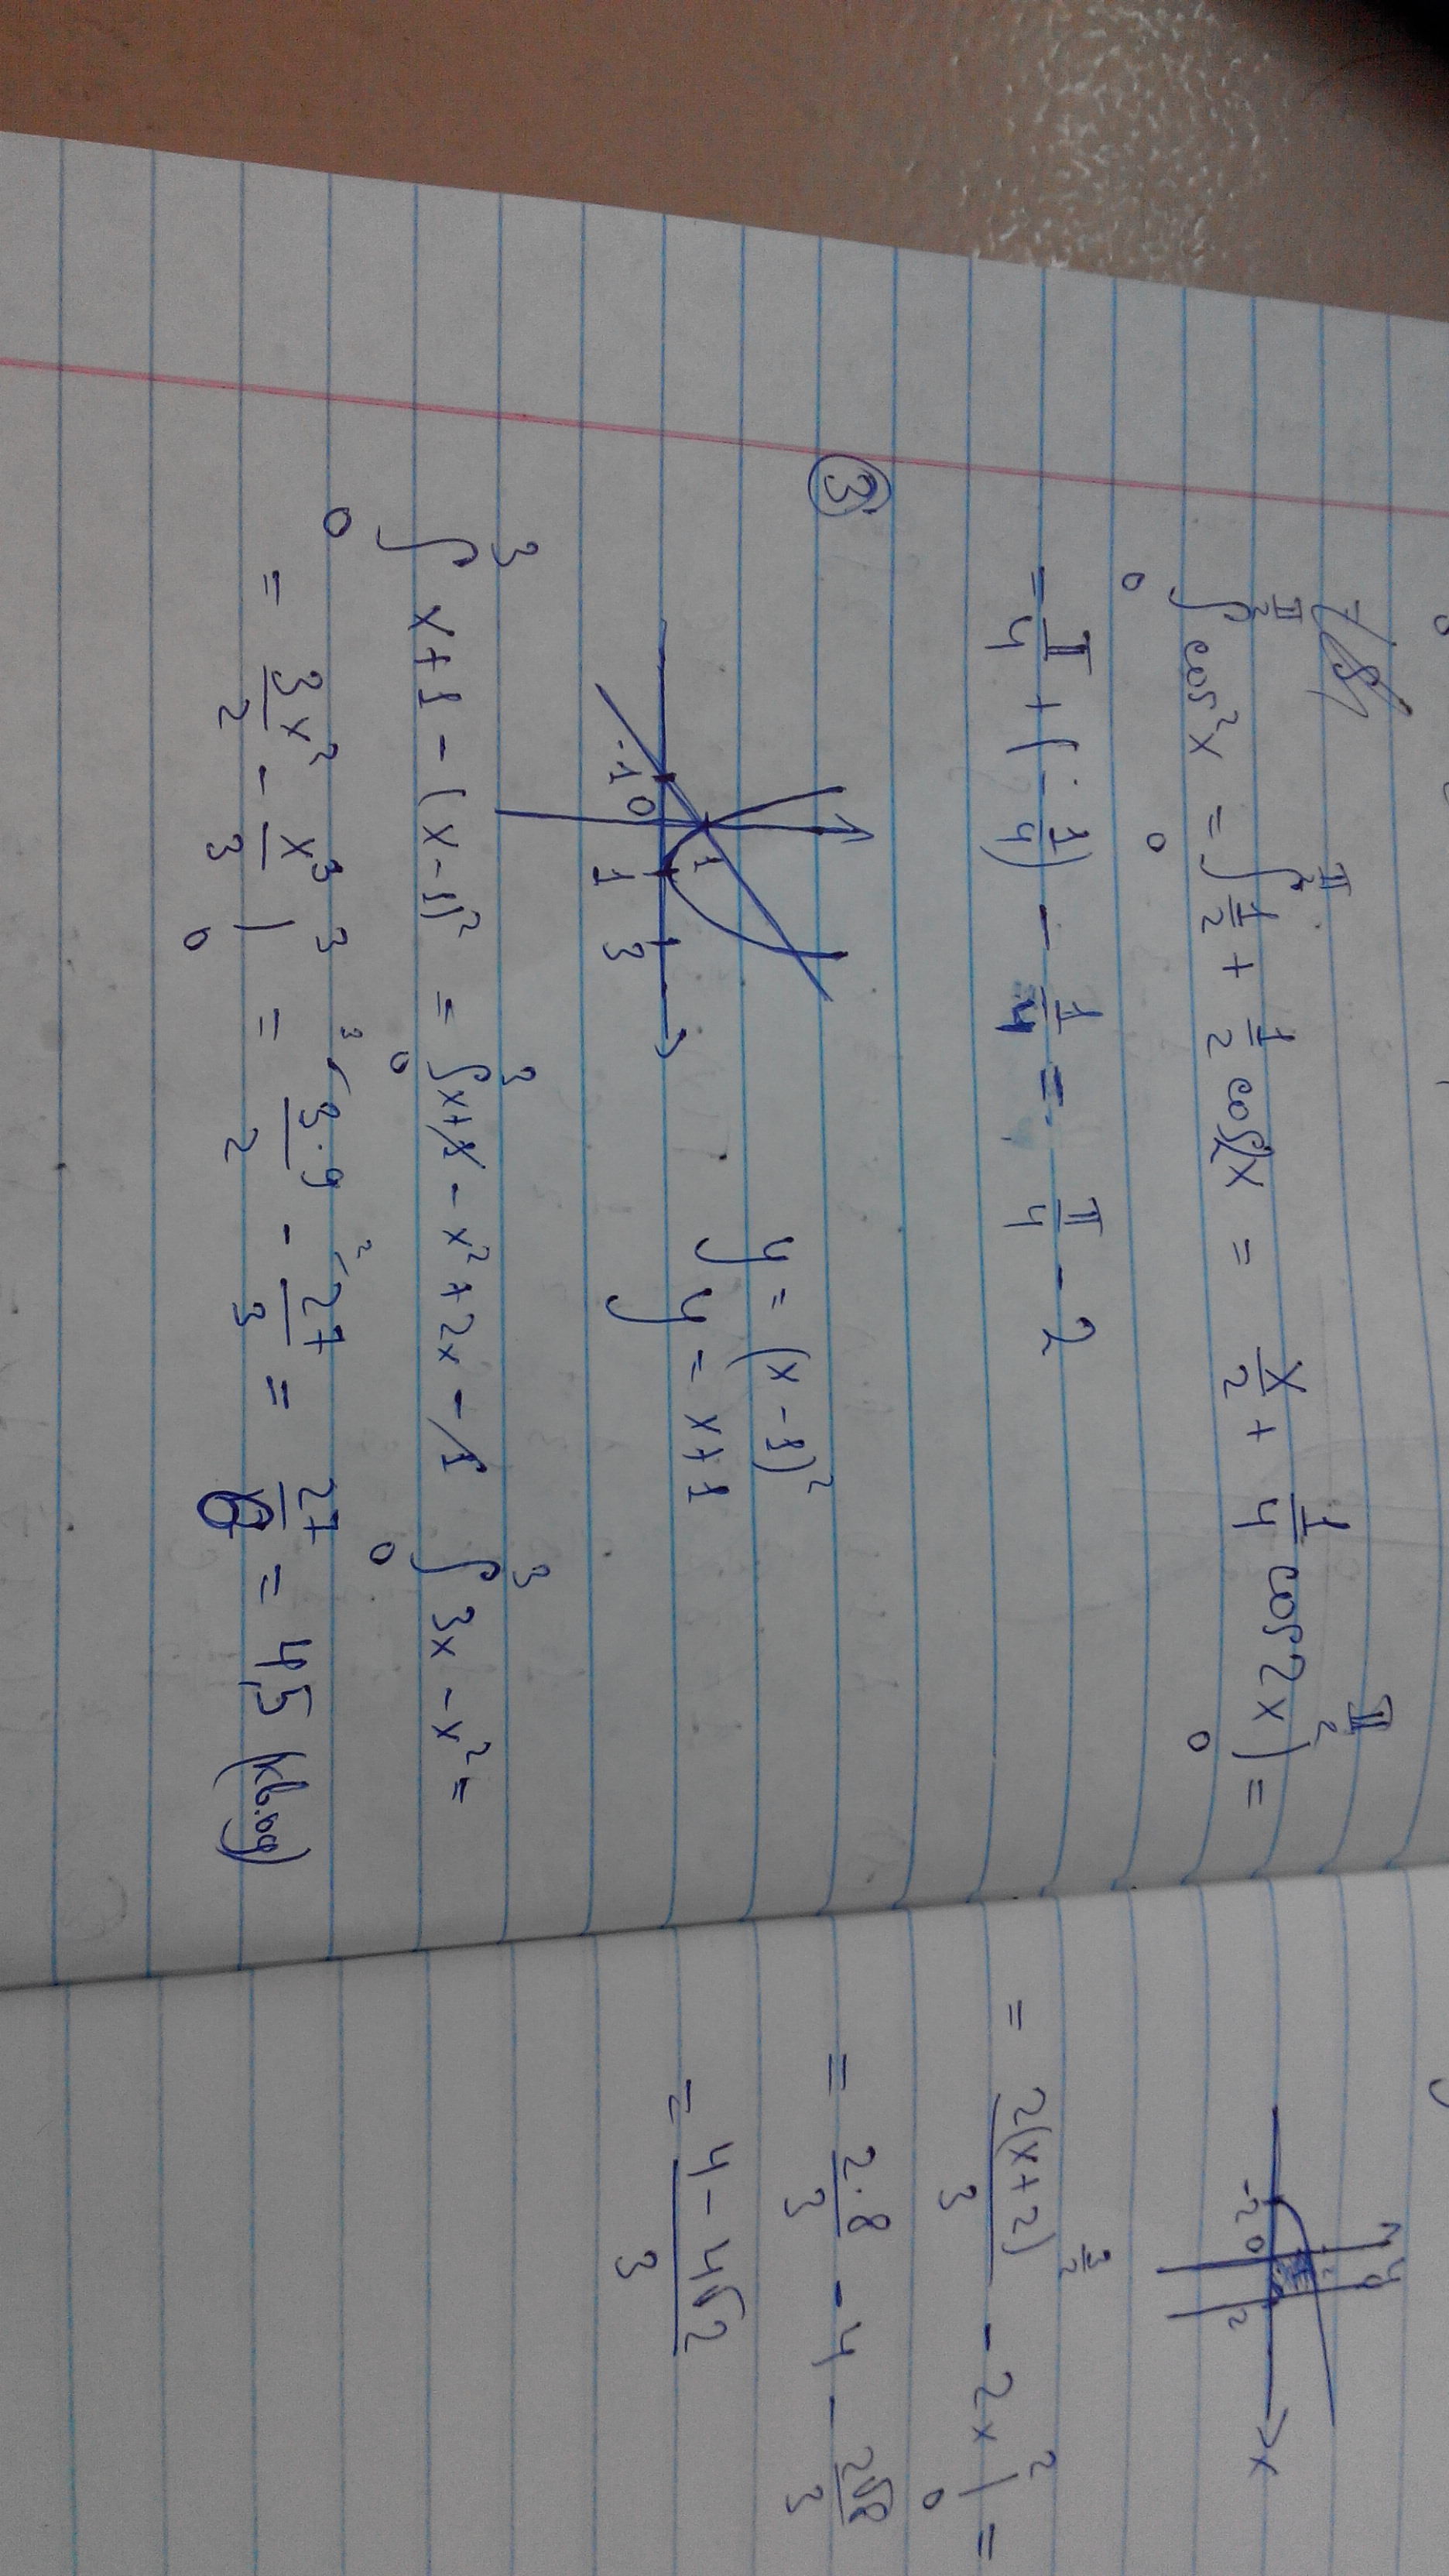 ∫₀^(π/2) cos²x = ∫₀^(π/2) 1/2 + 1/2 cos2x = x/2 + 1/4 cos2x)₀^(π/2) =
= π/4 + (-1/4) - 1/4 = π/4 - 2
③
y = (x-1)²
y = x+1
-1 0 1 1 3
∫₀³ x+1 - (x-1)² = ∫₀³ x+1 - x² + 2x - 1 ∫₀³ 3x - x² =
= 3x²/2 - x³/3 |₀³ = ³⁄ 3·9/2 - ²⁄ 27/3 = 27/6 = 4,5 (кв.ед)
y
-2 0 2 x
= 2(x+2)^(3/2)/3 - 2x |₀² =
= 2·8/3 - 4 - 2√8/3
= 4-4√2/3